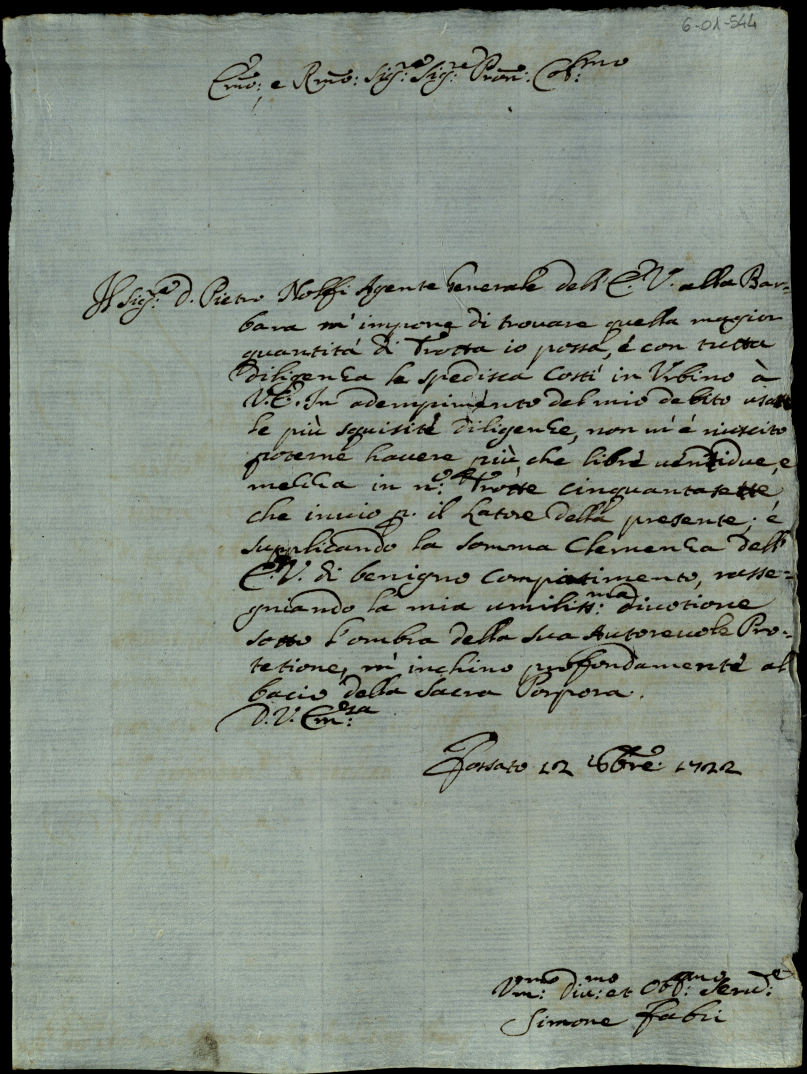 6-01-544
Em̃o: e Rm̃o: Sig.re Sig.re Pron̄: Col:mo
Il Sig.re D. Pietro Nolfi Agente Generale dell' E.V. alla Bar=
bara m' impone di trovare quella maggior
quantitá di Trotta io possa, é con tutta
diligenza le spedisca costí in Urbino à
V.E. In adempimento del mio debito usate
le più squisite diligenze, non m' é riuscito
poterne havere più, che libre ventidue, e
mezza in n.o: Trotte cinquantasette
che invio p. il Latore della presente; é
supplicando la somma Clemenza dell'
E.V. di benigno compatimento, rasse=
gniando la mia umiliss:ma divotione
sotto l'ombra della sua Autorevole Pro=
tetione, m' inchino profondamente al
bacio della Sacra Porpora.
D. V. Em:za
Fossato 12 Xbre: 1722
Um:mo Div:mo et Obb:mo Serv:e
Simone Fabri